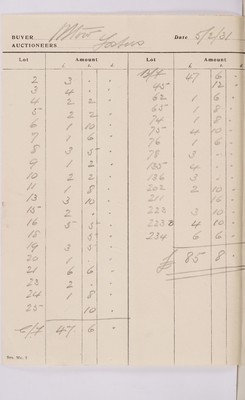 BUYER
Date 5/2/31
AUCTIONEERS
Lot Amount
£ s. d.
2 3 . .
3 4 . .
4 2 2 .
5 2 2 .
6 1 10 .
7 1 6 .
8 3 5 .
9 1 2 .
10 2 2 .
11 1 8 .
13 3 10 .
15 2 . .
16 5 5 .
18 5 .
19 3 5 .
20 1 . .
21 6 6 .
23 2 . .
24 1 8 .
25 10 .
C/f 47 6 .
Lot Amount
£ s. d.
B/f 47 6
45 12 .
62 1 6 .
65 1 8 .
74 1 8 .
75 4 10 .
76 1 6 .
78 3 . .
135 4 . .
136 3 . .
202 2 10 .
211 16 .
223 3 10 .
223B 4 10 .
234 6 6 .
£ 85 8 .